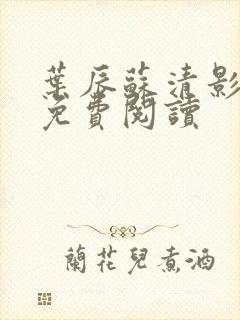 葉辰蘇清影
免費閱讀
蘭花兒煮酒